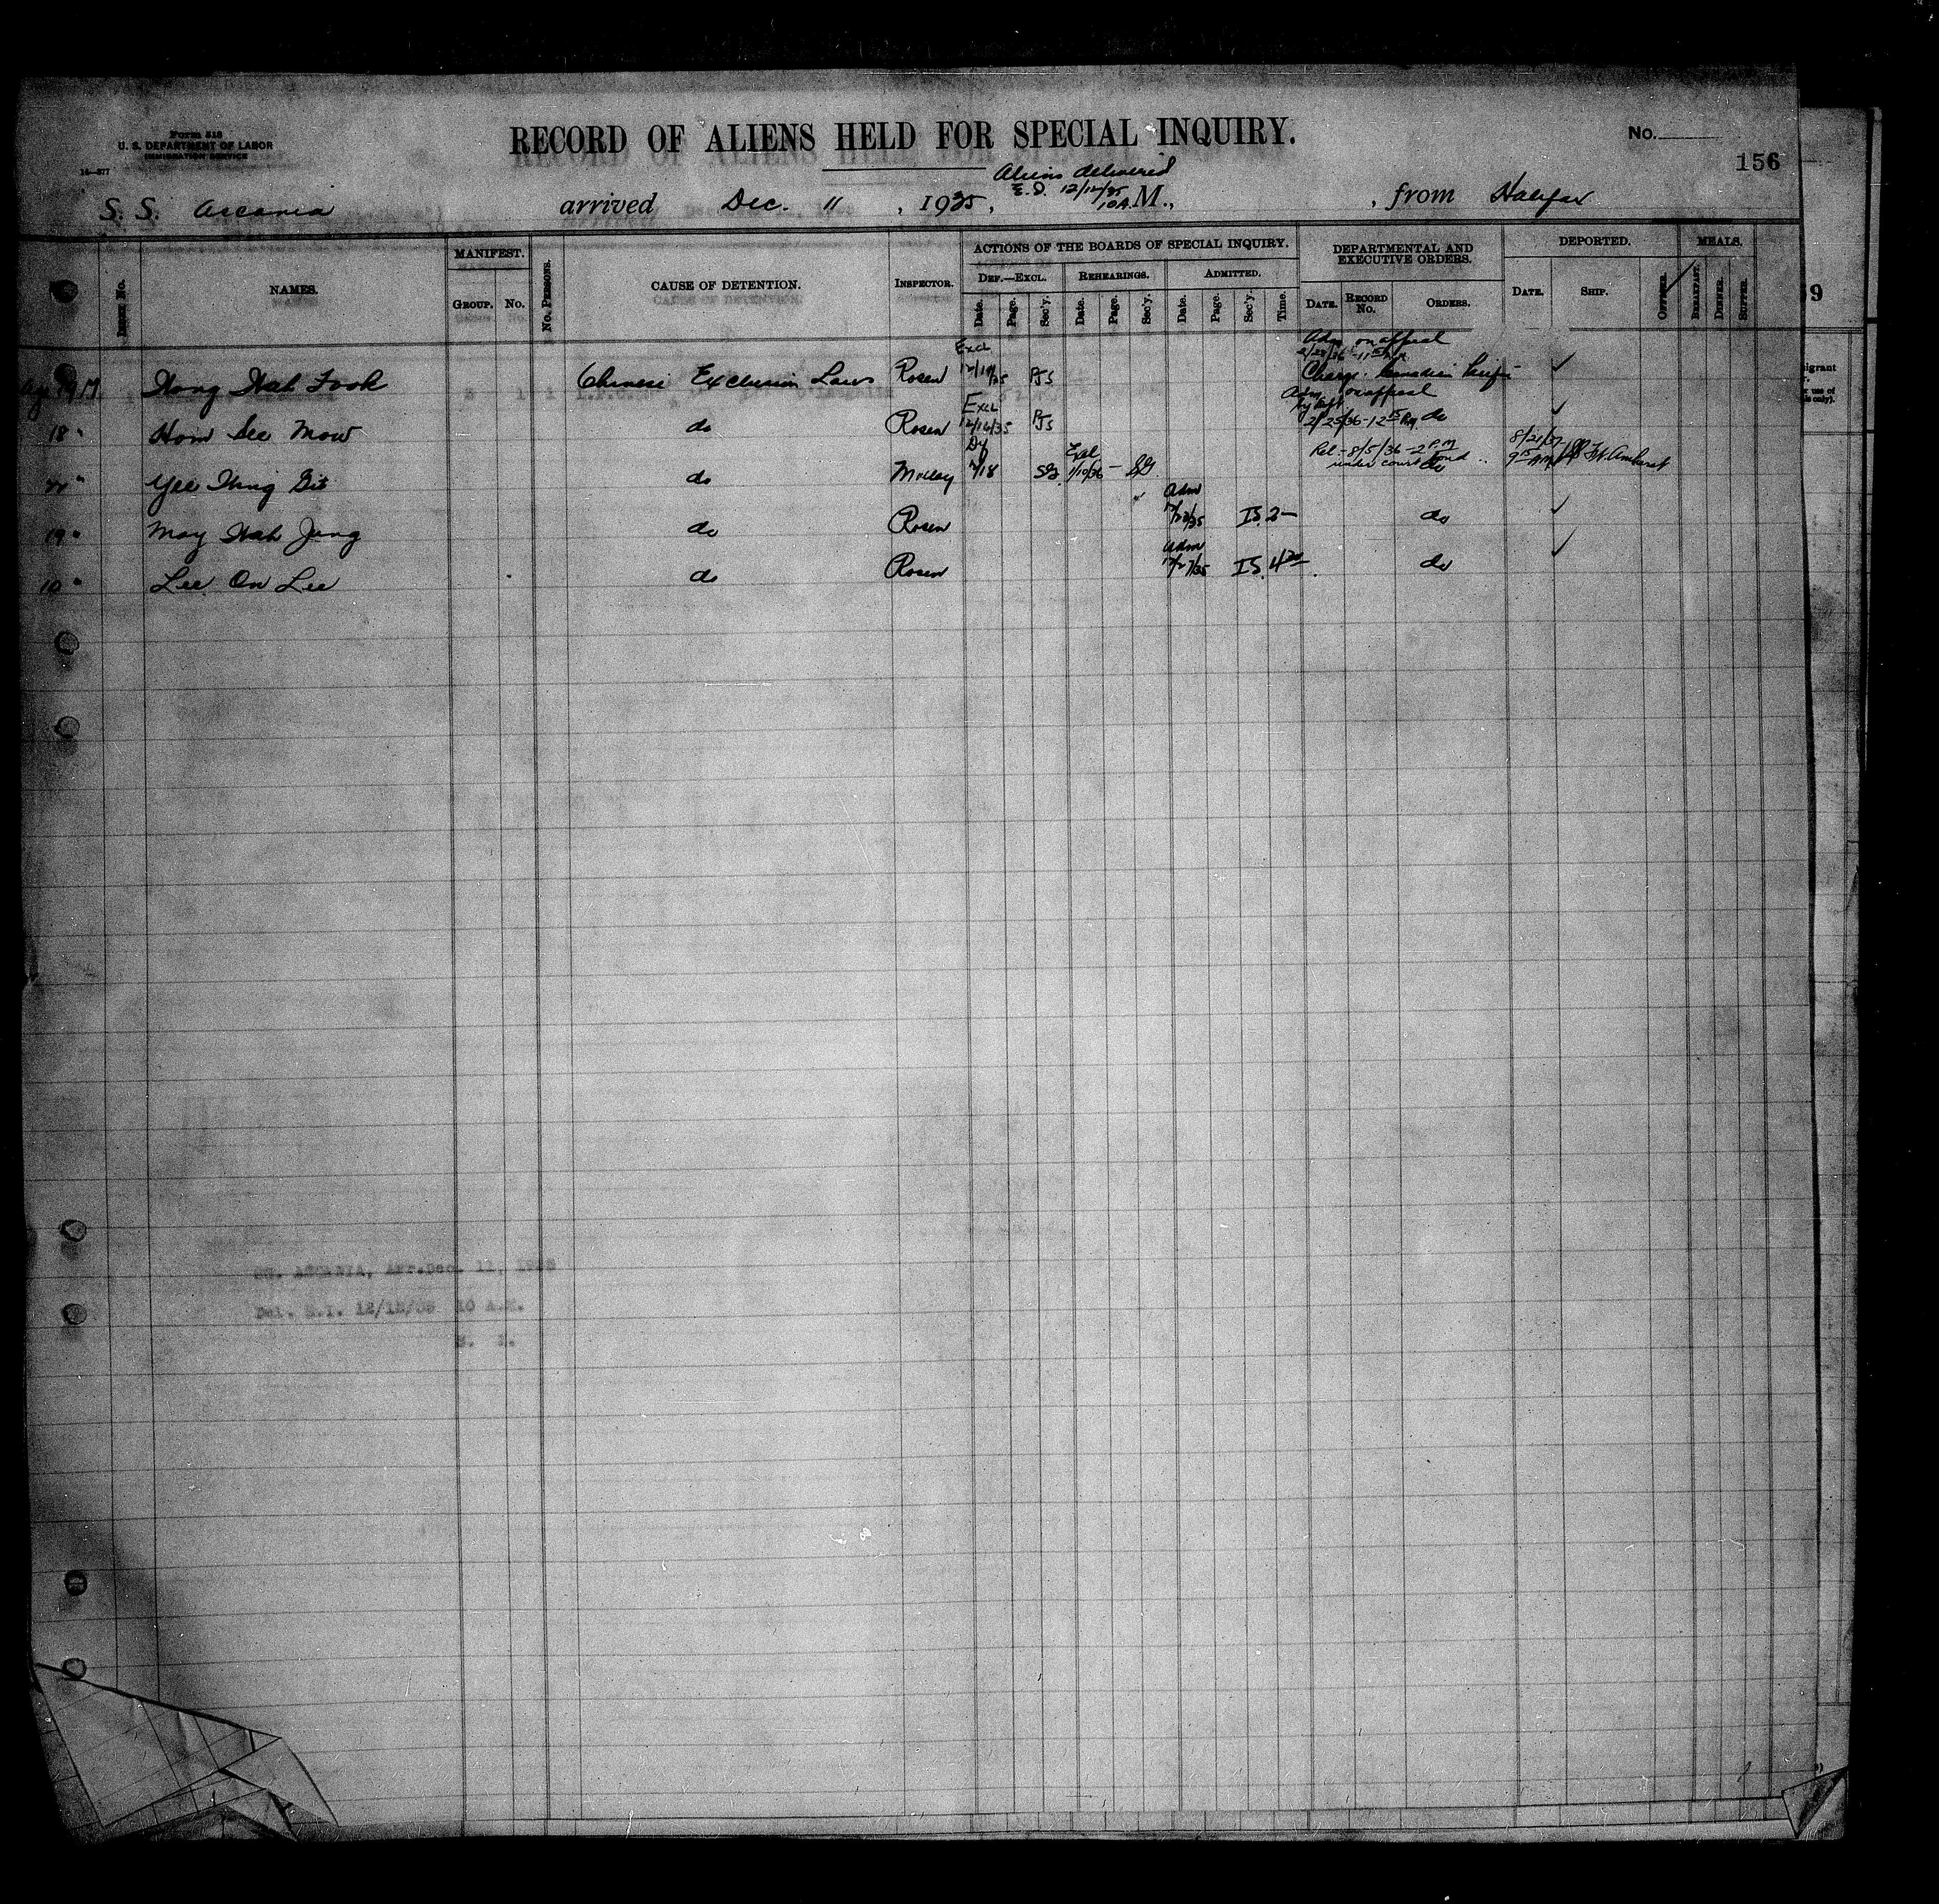 Form 518
U. S. DEPARTMENT OF LABOR
IMMIGRATION SERVICE
14—877
RECORD OF ALIENS HELD FOR SPECIAL INQUIRY.
No.
156
Aliens delivered
E. I. 12/12/35
10 A.M.,
S. S. Ascania arrived Dec. 11, 1935, from Halifax
MANIFEST. ACTIONS OF THE BOARDS OF SPECIAL INQUIRY. DEPARTMENTAL AND EXECUTIVE ORDERS. DEPORTED. MEALS.
DEF.—EXCL. REHEARINGS. ADMITTED.
INDEX No. NAMES. GROUP. No. No. PERSONS. CAUSE OF DETENTION. INSPECTOR. Date. Page. Sec'y. Date. Page. Sec'y. Date. Page. Sec'y. Time. DATE. RECORD No. ORDERS. DATE. SHIP. OFFICER. BREAKFAST. DINNER. SUPPER.
9
Excl Adm on appeal
Age 19 M Hong Wah Fook Chinese Exclusion Laws Rosen PJS Charge Canadian ✓
Excl Adm on appeal
18 " Hom See Mow do Rosen 12/16/35 PJS 2/25/36 - 12 PM do ✓
Df Excl Rel - 8/5/36 - 2 PM 8/21/37
" Yee Thing Git do 7/18 SG 1/10/36 - SG under court Bond do 9 AM SS Ft. Amherst
Adm
19 " May Wah Jung do Rosen IS 2— do ✓
Adm
10 " Lee On Lee do Rosen 12/27/35 IS 4 do ✓
SS. ASCANIA, Arr. Dec. 11, 1935
Del. E.I. 12/12/35 10 A.M.